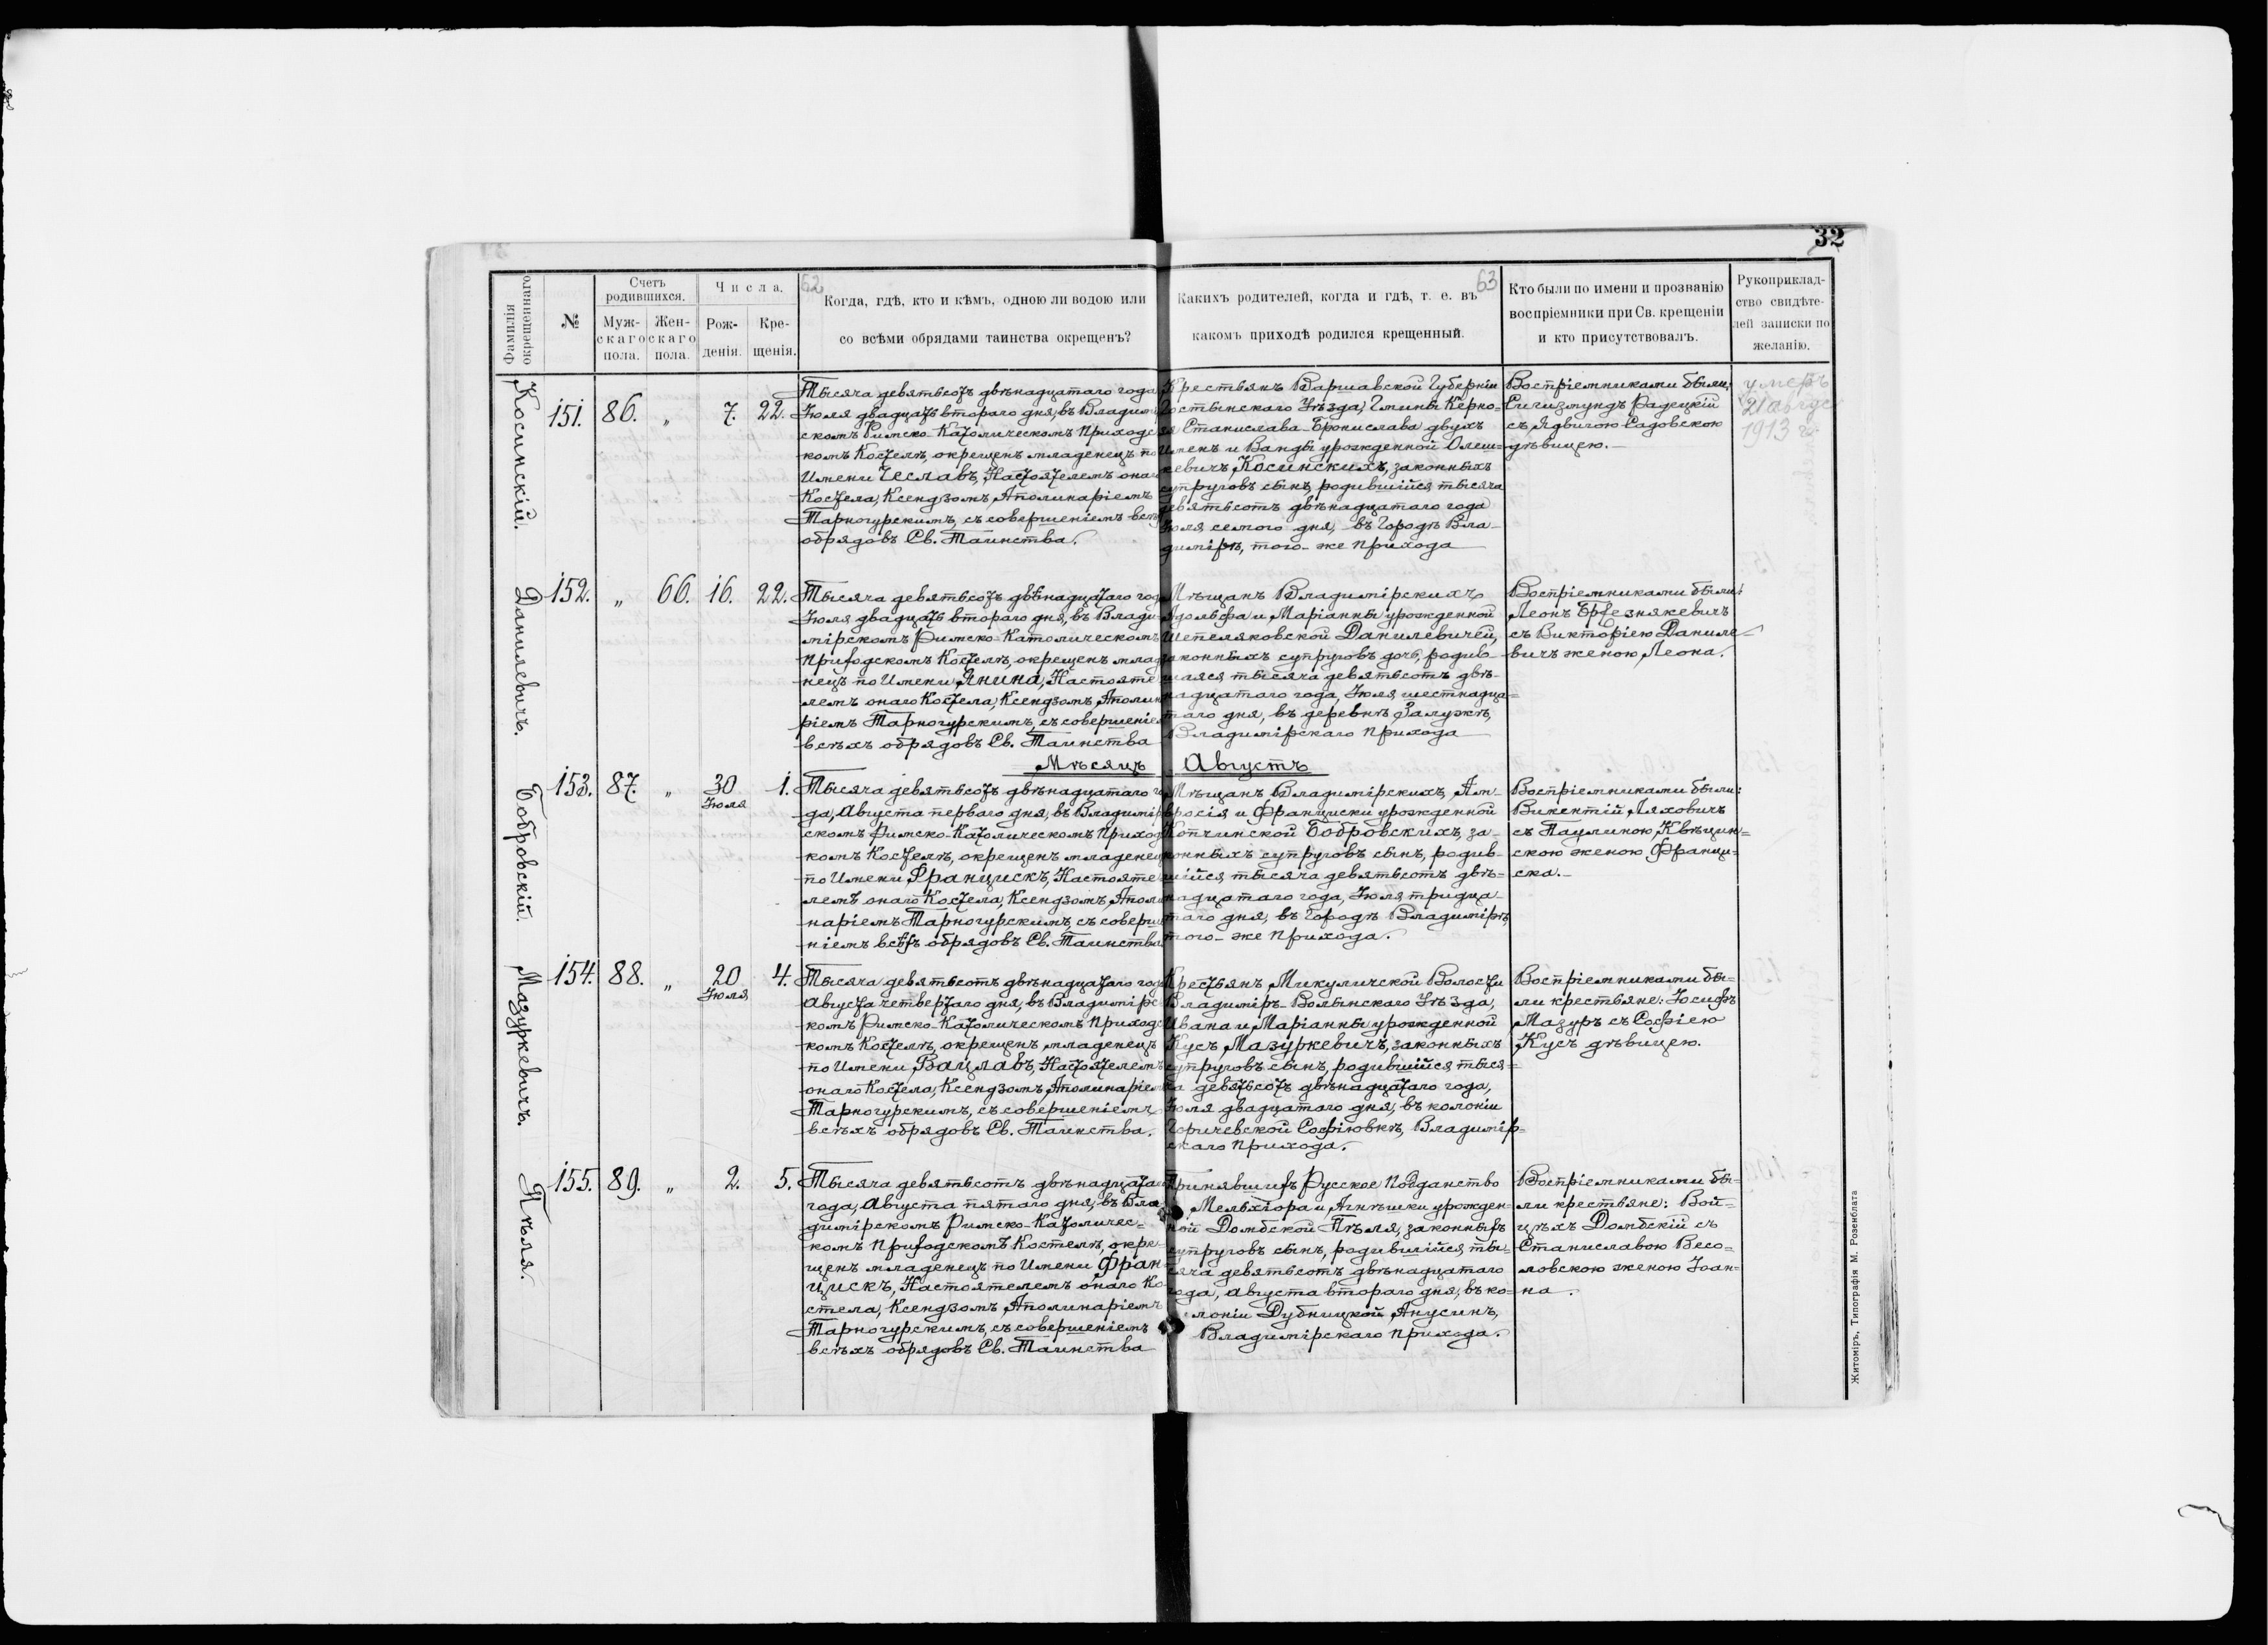 32
62
63
Фамилія окрещеннаго
№
Счетъ родившихся.
Мужскаго пола.
Женскаго пола.
Числа.
Рожденія.
Крещенія.
Когда, гдѣ, кто и кѣмъ, одною ли водою или
со всѣми обрядами таинства окрещенъ?
Какихъ родителей, когда и гдѣ, т. е. въ
какомъ приходѣ родился крещенный.
Кто были по имени и прозванію
воспріемники при Св. крещеніи
и кто присутствовалъ.
Рукоприклад-
ство свидѣте-
лей записки по
желанію.
Косинскій.
151. 86. „ 7. 22.
Тысяча девятьсотъ двѣнадцатаго года
Іюля двадцать втораго дня, въ Владимі
скомъ Римско-Католическомъ Приходс
комъ Костелѣ, окрещенъ младенецъ по
Имени Чеславъ, Настоятелемъ онаго
Костела, Ксендзомъ, Аполинаріемъ
Тарногурскимъ, съ совершеніемъ всѣхъ
обрядовъ Св. Таинства.
Крестьянъ Варшавской Губерніи
Гостынскаго Уѣзда, Гмины Керно=
зя Станислава-Бронислава двухъ
Именъ и Ванды урожденной Олеш=
кевичъ, Косинскихъ, законныхъ
супруговъ сынъ, родившійся тысяча
девятьсотъ двѣнадцатаго года
Іюля семого дня, въ Городѣ Вла-
димірѣ, того-же Прихода
Воспріемниками были:
Сигизмундъ Радецкій
съ Ядвигою Садовскою
дѣвицею.
умеръ
21 авгус
1913 г.
Данилевичъ.
152. „ 66. 16. 22.
Тысяча девятьсотъ двѣнадцатаго год
Іюля двадцать втораго дня, въ Влади
мірскомъ Римско-Католическомъ
Приходскомъ Костелѣ, окрещенъ млад
нецъ по Имени Янина, Настояте
лемъ онаго Костела, Ксендзомъ, Аполин
ріемъ Тарногурскимъ, съ совершеніем
всѣхъ обрядовъ Св. Таинства
Мѣщанъ Владимірскихъ
Адольфа и Маріанны урожденной
Шепеляковской Данилевичей,
законныхъ супруговъ дочь, родив-
шаяся тысяча девятьсотъ двѣ-
надцатаго года, Іюля, шестнадца=
таго дня, въ деревнѣ Залужѣ,
Владимірскаго Прихода
Воспріемниками были:
Леонъ Брезнякевичъ
съ Викторіею Даниле-
вичъ женою Леона.
Мѣсяцъ Августъ
Бобровскій.
153. 87. „ 30 Іюля 1.
Тысяча девятьсотъ двѣнадцатаго го
да, Августа перваго дня, въ Владимір
скомъ Римско-Католическомъ Приход
комъ Костелѣ, окрещенъ младенец
по Имени Францискъ, Настояте
лемъ онаго Костела, Ксендзомъ, Аполи
наріемъ Тарногурскимъ, съ соверше
ніемъ всѣхъ обрядовъ Св. Таинства
Мѣщанъ Владимірскихъ, Ам-
вросія и Франциски урожденной
Копчинской Бобровскихъ, за-
конныхъ супруговъ сынъ, родив-
шійся тысяча девятьсотъ двѣ=
надцатаго года, Іюля, тридца-
таго дня, въ Городѣ Владимірѣ,
того-же Прихода.
Воспріемниками были:
Викентій Ляховичъ
съ Паулиною Квѣцин=
скою женою Франци=
ска.
Мазуркевичъ.
154. 88. „ 20 Іюля 4.
Тысяча девятьсотъ двѣнадцатаго год
Августа четвертаго дня, въ Владимірс
комъ Римско-Католическомъ Приходс
комъ Костелѣ, окрещенъ младенецъ
по Имени Вацлавъ, Настоятелемъ
онаго Костела, Ксендзомъ, Аполинаріем
Тарногурскимъ, съ совершеніемъ
всѣхъ обрядовъ Св. Таинства.
Крестьянъ Микуличской Волости
Владиміръ-Волынскаго Уѣзда,
Ивана и Маріанны урожденной
Кусъ, Мазуркевичъ, законныхъ
супруговъ сынъ, родившійся тыся=
ча девятьсотъ двѣнадцатаго года,
Іюля двадцатаго дня, въ колоніи
Горичевской Софіювкѣ, Владимір=
скаго Прихода.
Воспріемниками бы-
ли крестьяне: Іосифъ
Мазуръ съ Софіею
Кусъ дѣвицею.
Пѣля.
155. 89. „ 2. 5.
Тысяча девятьсотъ двѣнадцатаго
года, Августа пятаго дня, въ Вла
димірскомъ Римско-Католичес=
комъ Приходскомъ Костелѣ, окре-
щенъ младенецъ по Имени Фран-
цискъ, Настоятелемъ онаго Ко-
стела, Ксендзомъ, Аполинаріемъ
Тарногурскимъ, съ совершеніемъ
всѣхъ обрядовъ Св. Таинства
Принявшихъ Русское Подданство
Мельхіора и Агнѣшки урожден=
ной Домбской Пѣля, законныхъ
супруговъ сынъ, родившійся, ты-
сяча девятьсотъ двѣнадцатаго
года, Августа втораго дня, въ ко=
лоніи Дубницкой Анусинъ,
Владимірскаго Прихода.
Воспріемниками бы-
ли крестьяне: Вой=
цѣхъ Домбскій съ
Станиславою Весо=
ловскою женою Іоан=
на.
Житоміръ, Типографія М. Розенблата